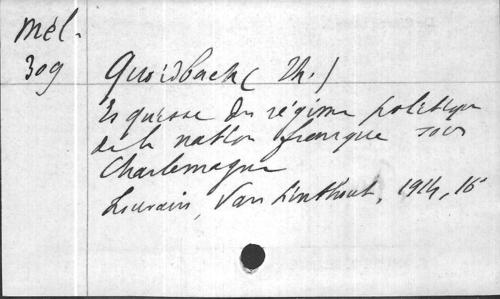 Mél.
309
Quoidbach (Th.)
Esquisse du régime politique
de la nation franque sous
Charlemagne
Louvain, Van Linthout, 1914, 16°